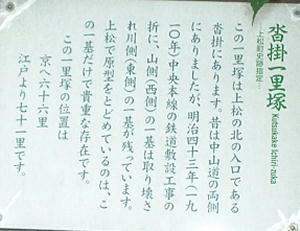 沓掛一里塚
上松町史跡指定
Kutsukake Ichiri-zuka
この一里塚は上松の北の入口である
沓掛にあります。昔は中山道の両側
にありましたが、明治四十三年(一九
一〇)年、中央本線の鉄道敷設工事の
折に、山側(西側)の一基は取り壊さ
れ川側(東側)の一基が残っています。
上松で原型をとどめているのは、こ
の一基だけで貴重な存在です。
この一里塚の位置は
京へ六十六里
江戸より七十一里です。